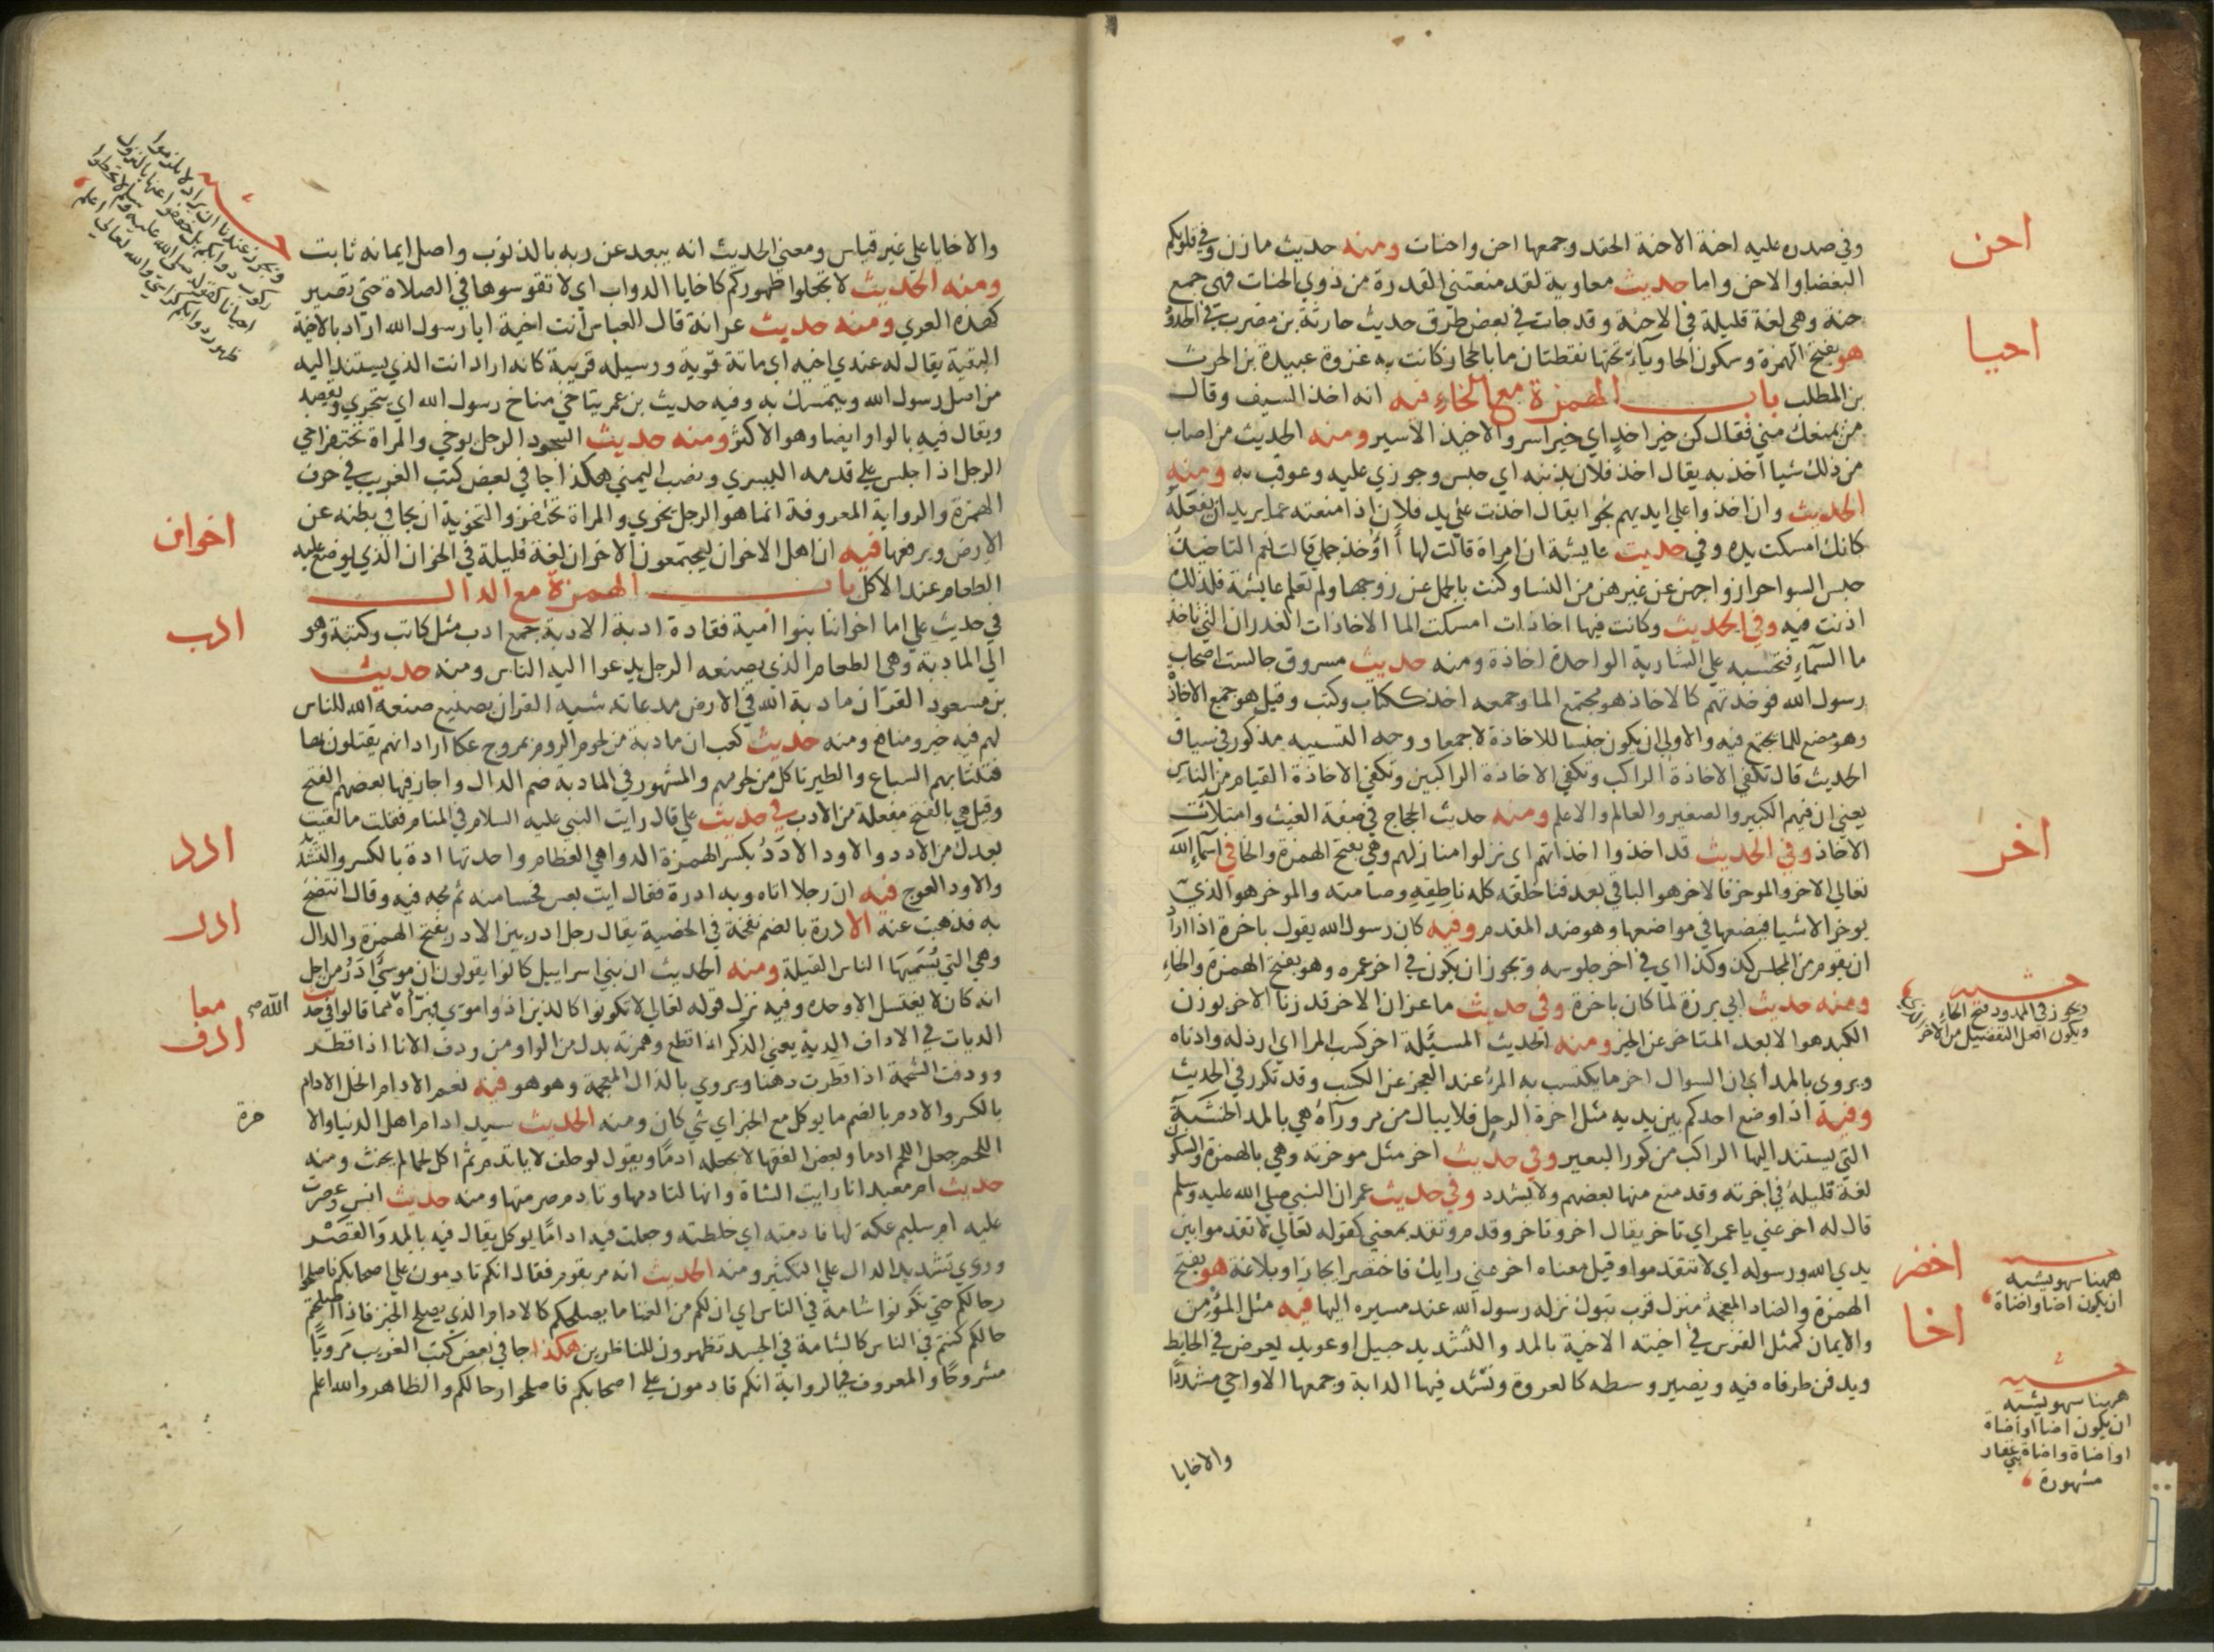 احن
وفي صدره عليه احنة الاحنة الحقد وجمعها احن واحنات ومنه حديث مازن وفي قلوبكم
البغضا والاحن واما حديث معاوية لقد منعتني القدرة من ذوي الحنات فهي جمع
احيا
حنة وهي لغة قليلة في الاحنة وقد جات في بعض طرق حديث حارثة بن مضرب في الحدود
هو بفتح الهمزة وسكون الحا وياء تحتها نقطتان ما بالحجاز كانت به غزوة عبيدة بن الحرث
بن المطلب باب الهمزة مع الخاء فيه انه اخذ السيف وقال
من يمنعك مني فقال كن خير اخذ اي خير اسر والاخيذ الاسير ومنه الحديث من اصاب
من ذلك شيا اخذ به يقال اخذ فلان بذنبه اي حبس وجوزي عليه وعوقب به ومنه
الحديث وان اخذوا على ايديهم نجوا يقال اخذت على يد فلان اذا منعته عما يريد ان يفعله
كانك امسكت يده وفي حديث عايشة ان امراة قالت لها أأوخذ جملي قالت نعم التاخيذ
حبس السواحر ازواجهن عن غيرهن من النسا وكنت بالجمل عن زوجها ولم تعلم عايشة فلذلك
اذنت فيه وفي الحديث وكانت فيها اخاذات امسكت الما الاخاذات الغدران التي تاخذ
ما السماء فتحبسه على الشاربة الواحدة اخاذة ومنه حديث مسروق جالست اصحاب
رسول الله فوجدتهم كالاخاذ هو مجتمع الما وجمعه اخذ ككتاب وكتب وقيل هو جمع الاخاذة
وهو مضع للما يجتمع فيه والاولى ان يكون جنسا للاخاذة لا جمعا ووجه التشبيه مذكور في سياق
الحديث قال تكفي الاخاذة الراكب وتكفي الاخاذة الراكبين وتكفي الاخاذة القيام من الناس
يعني ان فيهم الكبير والصغير والعالم والاعلم ومنه حديث الحجاج في صفة الغيث وامتلات
اخر
الاخاذ وفي الحديث قد اخذوا اخذاتهم اى نزلوا منازلهم وهي بفتح الهمزة والخا في اسماء الله
تعالى الاخر والموخر فالاخر هو الباقي بعد فنا خلقه كله ناطقه وصامته والموخر هو الذي
يوخر الاشيا فيضعها في مواضعها وهو ضد المقدم وفيه كان رسول الله يقول باخرة اذا اراد
ان يقوم من المجلس كذا وكذا اي في اخر جلوسه ويجوز ان يكون في اخر عمره وهو بفتح الهمزة والخاء
حشيه
ويجوز في الممدود فتح الخاء
ويكون افعل التفضيل من الاخر
ومنه حديث ابي برزة لما كان باخرة وفي حديث ماعز ان الاخر قد زنا الاخر بوزن
الكبد هو الابعد المتاخر عن الخير ومنه الحديث المسئلة اخر كسب المرا اي ارذله وادناه
ويروى بالمد اي ان السوال اخر ما يكتسب به المرء عند العجز عن الكسب وقد تكرر في الحديث
وفيه اذا وضع احدكم بين يديه مثل اخرة الرحل فلا يبال من مر وراه هي بالمد الخشبة
التي يستند اليها الراكب من كور البعير وفي حديث اخر مثل موخرته وهي بالهمزة والسكون
لغة قليلة في اخرته وقد منع منها بعضهم ولا يشدد وفي حديث عمر ان النبي صلى الله عليه وسلم
قال له اخر عني يا عمر اي تاخر يقال اخر وتاخر وقدم وتقدم بمعنى كقوله تعالى لا تقدموا بين
اخضر
يدي الله ورسوله اي لا تتقدموا وقيل معناه اخر عني رايك فاختصر ايجازا وبلاغة هو بفتح
حشيه
ههنا سهو يشبه
ان يكون اضا واضاة
الهمزة والضاد المعجمة منزل قرب تبوك نزله رسول الله عند مسيره اليها فيه مثل المؤمن
اخا
والايمان كمثل الفرس في اخيته الاخية بالمد والتشديد حبيل او عويد يعرض في الحايط
ويدفن طرفاه فيه ويصير وسطه كالعروة وتشد فيها الدابة وجمعها الاواخي مشددا
حشيه
ههنا سهو يشبه
ان يكون اضا او اضاة
او اضاة واضاة بني غفار
مشهورة
والاخايا
والاخايا على غير قياس ومعنى الحديث انه يبعد عن ربه بالذنوب واصل ايمانه ثابت
ومنه الحديث لا تجعلوا ظهوركم كاخايا الدواب اي لا تقوسوها في الصلاة حتى تصير
كهذه العري ومنه حديث عمر انه قال للعباس انت اخية ابا رسول الله اراد بالاخية
البقية يقال له عندي اخيه اي ماتة قوية ووسيلة قريبة كانه اراد انت الذي يستند اليه
من اصل رسول الله ويتمسك به وفيه حديث بن عمر يتاخى مناخ رسول الله اي يتحرى ويقصد
ويقال فيه بالواو ايضا وهو الاكثر ومنه حديث السجود الرجل يوخي والمراة تحتفز اخى
الرجل اذا جلس على قدمه اليسرى ونصب اليمنى هكذا جا في بعض كتب الغريب في حرف
الهمزة والرواية المعروفة انما هو الرجل يخوى والمراة تحتفز والتخوية ان يجافي بطنه عن
اخوان
الارض ويرفعها فيه ان اهل الاخوان ليجتمعون الاخوان لغة قليلة في الخوان الذي يوضع عليه
الطعام عند الاكل باب الهمزة مع الدال
ادب
في حديث علي اما اخواننا بنوا امية فقادة ادبة الادبة جمع ادب مثل كاتب وكتبة وهو
الى المادبة وهي الطعام الذي يصنعه الرجل يدعوا اليه الناس ومنه حديث
بن مسعود القران مادبة الله في الارض مدعاته شبه القران بصنيع صنعه الله للناس
لهم فيه خير ومنافع ومنه حديث كعب ان مادبة من لحوم الروم بمروج عكا اراد انهم يقتلون بها
فتنتابهم السباع والطير تاكل من لحومهم والمشهور في المادبه ضم الدال واجاز فيها بعضهم الفتح
وقيل هي بالفتح مفعلة من الادب في حديث علي قال رايت النبي عليه السلام في المنام فقلت ما لقيت
ادد
بعدك من الادد والاود الادد بكسر الهمزة الدواهي العظام واحدتها ادة بالكسر والتشديد
والاود العوج فيه ان رجلا اتاه وبه ادرة فقال ايت بعس فحسا منه ثم مجه فيه وقال انتضح
ادر
به فذهبت عنه الادرة بالضم نفخة في الخصية يقال رجل ادر بين الادر بفتح الهمزة والدال
وهي التي يسميها الناس القيلة ومنه الحديث ان بني اسراييل كانوا يقولون ان موسى ادر من اجل
معا
الله
انه كان لا يغتسل الا وحده وفيه نزل قوله تعالى لا تكونوا كالذين اذوا موسى فبراه مما قالوا في حديث
ادف
الديات في الاداف الدية يعني الذكر اذا قطع وهمزته بدل من الواو من ودف الانا اذا قطر
وودفت الشحمة اذا قطرت دهنا ويروى بالذال المعجمة وهو هو فيه نعم الادام الخل الادام
بالكسر والادم بالضم ما يوكل مع الخبز اي شي كان ومنه الحديث سيد ادام اهل الدنيا والا
خرة
اللحم جعل اللحم ادما وبعض الفقها لا يجعله ادما ويقول لو حلف لا ياتدم ثم اكل لحما لم يحنث ومنه
حديث ام معبد انا رايت الشاة وانها لتادمها وتادم صرمتها ومنه حديث انس وعصرت
عليه ام سليم عكة لها فادمته اي خلطته وجعلت فيه اداما يوكل يقال فيه بالمد والقصر
وروي تشديد الدال على التكثير ومنه الحديث انه مر بقوم فقال انكم تادمون على اصحابكم فاصلحوا
رحالكم حتى تكونوا شامة في الناس اي ان لكم من الغنا ما يصلحكم كالادام الذي يصلح الخبز فاذا اصلحتم
حالكم كنتم في الناس كالشامة في الجسد تظهرون للناظرين هكذا جا في بعض كتب الغريب مرويا
مشروحا والمعروف في الرواية انكم قادمون على اصحابكم فاصلحوا رحالكم والظاهر والله اعلم